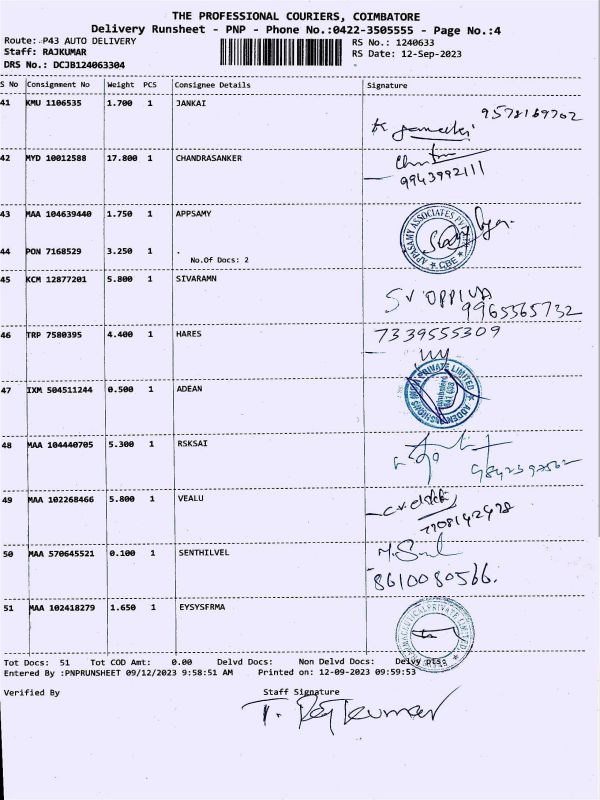 THE PROFESSIONAL COURIERS, COIMBATORE
Delivery Runsheet - PNP - Phone No.:0422-3505555 - Page No.:4
Route: P43 AUTO DELIVERY RS No.: 1240633
Staff: RAJKUMAR RS Date: 12-Sep-2023
DRS No.: DCJB124063304
S No Consignment No Weight PCS Consignee Details Signature
41 KMU 1106535 1.700 1 JANKAI 9578169702
42 MYD 10012588 17.800 1 CHANDRASANKER
9943992111
43 MAA 104639440 1.750 1 APPSAMY
APPASAMY ASSOCIATES PVT
CBE
44 PON 7168529 3.250 1 .
No.Of Docs: 2
45 KCM 12877201 5.800 1 SIVARAMN
SV OPPIVA
9965565732
46 TRP 7580395 4.400 1 HARES 7339555309
PRIVATE LIMITED
47 IXM 504511244 0.500 1 ADEAN
48 MAA 104440705 5.300 1 RSKSAI
49 MAA 102268466 5.800 1 VEALU
7708142478
50 MAA 570645521 0.100 1 SENTHILVEL
8610080566.
51 MAA 102418279 1.650 1 EYSYSFRMA
PRIVATE LIMITED
Tot Docs: 51 Tot COD Amt: 0.00 Delvd Docs: Non Delvd Docs: Delvy
Entered By :PNPRUNSHEET 09/12/2023 9:58:51 AM Printed on: 12-09-2023 09:59:53
Verified By Staff Signature
T. Rajkumar